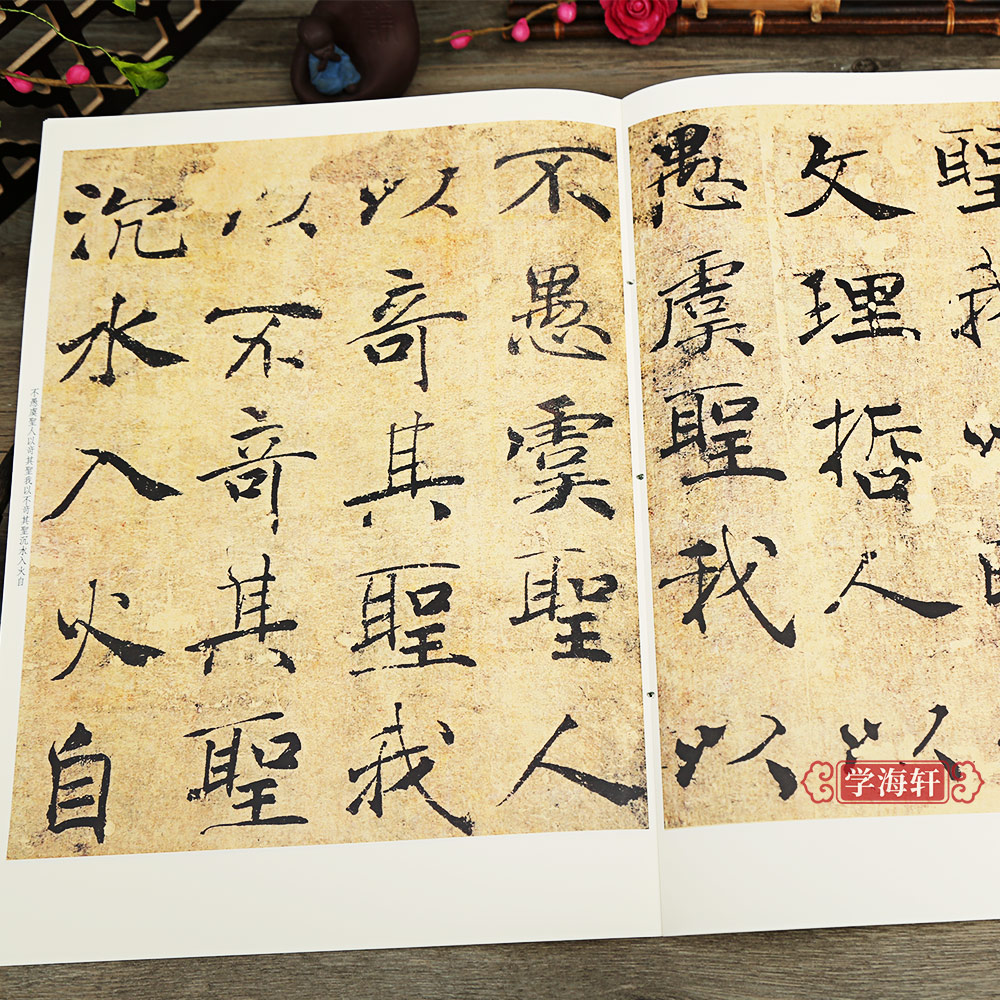 聖我
文理哲人以
愚虞聖我以
不愚虞聖人
以奇其聖我
以不奇其聖
沉水入火自
不愚虞聖人以奇其聖我以不奇其聖沉水入火自
学海轩